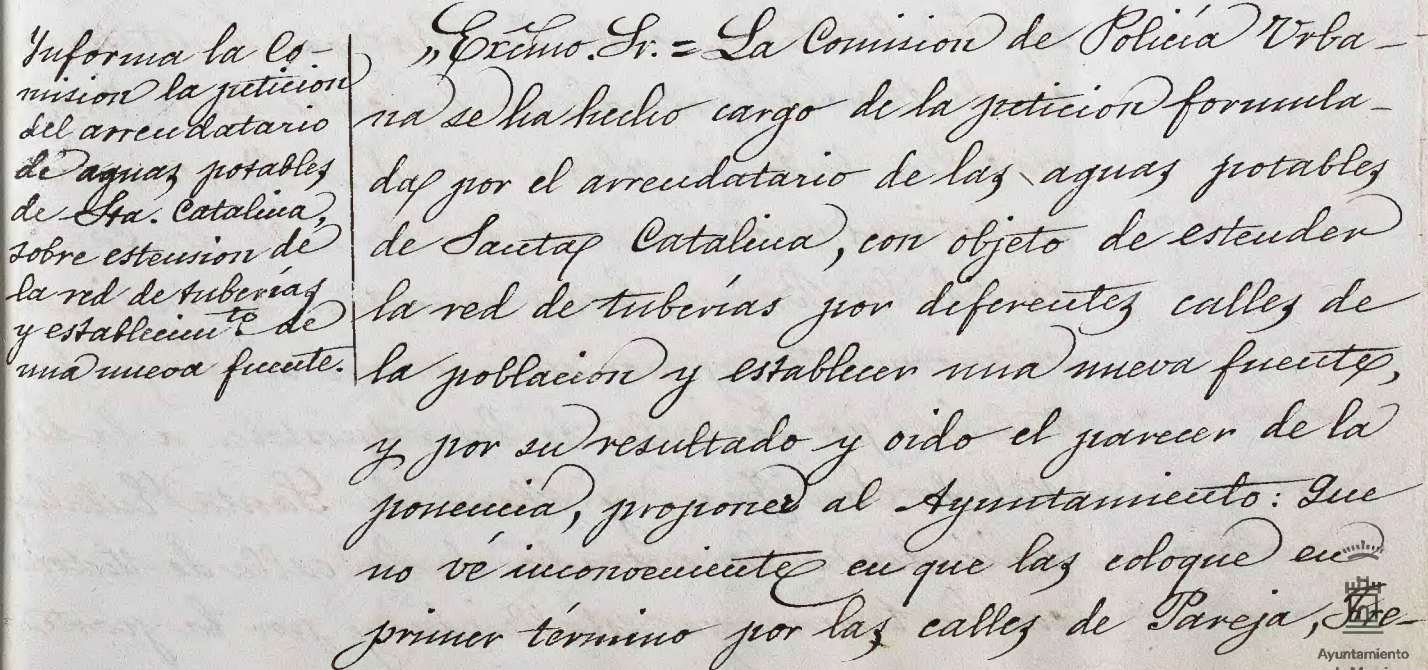 Informa la Co-
mision la peticion
del arrendatario
de aguas potables
de Sta. Catalina,
sobre estension de
la red de tuberías
y establecimto. de
una nueva fuente.
„Excmo. Sr. = La Comision de Policía Urba-
na se ha hecho cargo de la peticion formula-
da por el arrendatario de las aguas potables
de Santa Catalina, con objeto de estender
la red de tuberías por diferentes calles de
la poblacion y establecer una nueva fuente,
y por su resultado y oido el parecer de la
ponencia, propone al Ayuntamiento: Que
no vé inconveniente en que las coloque en
primer término por las calles de Pareja,
Ayuntamiento